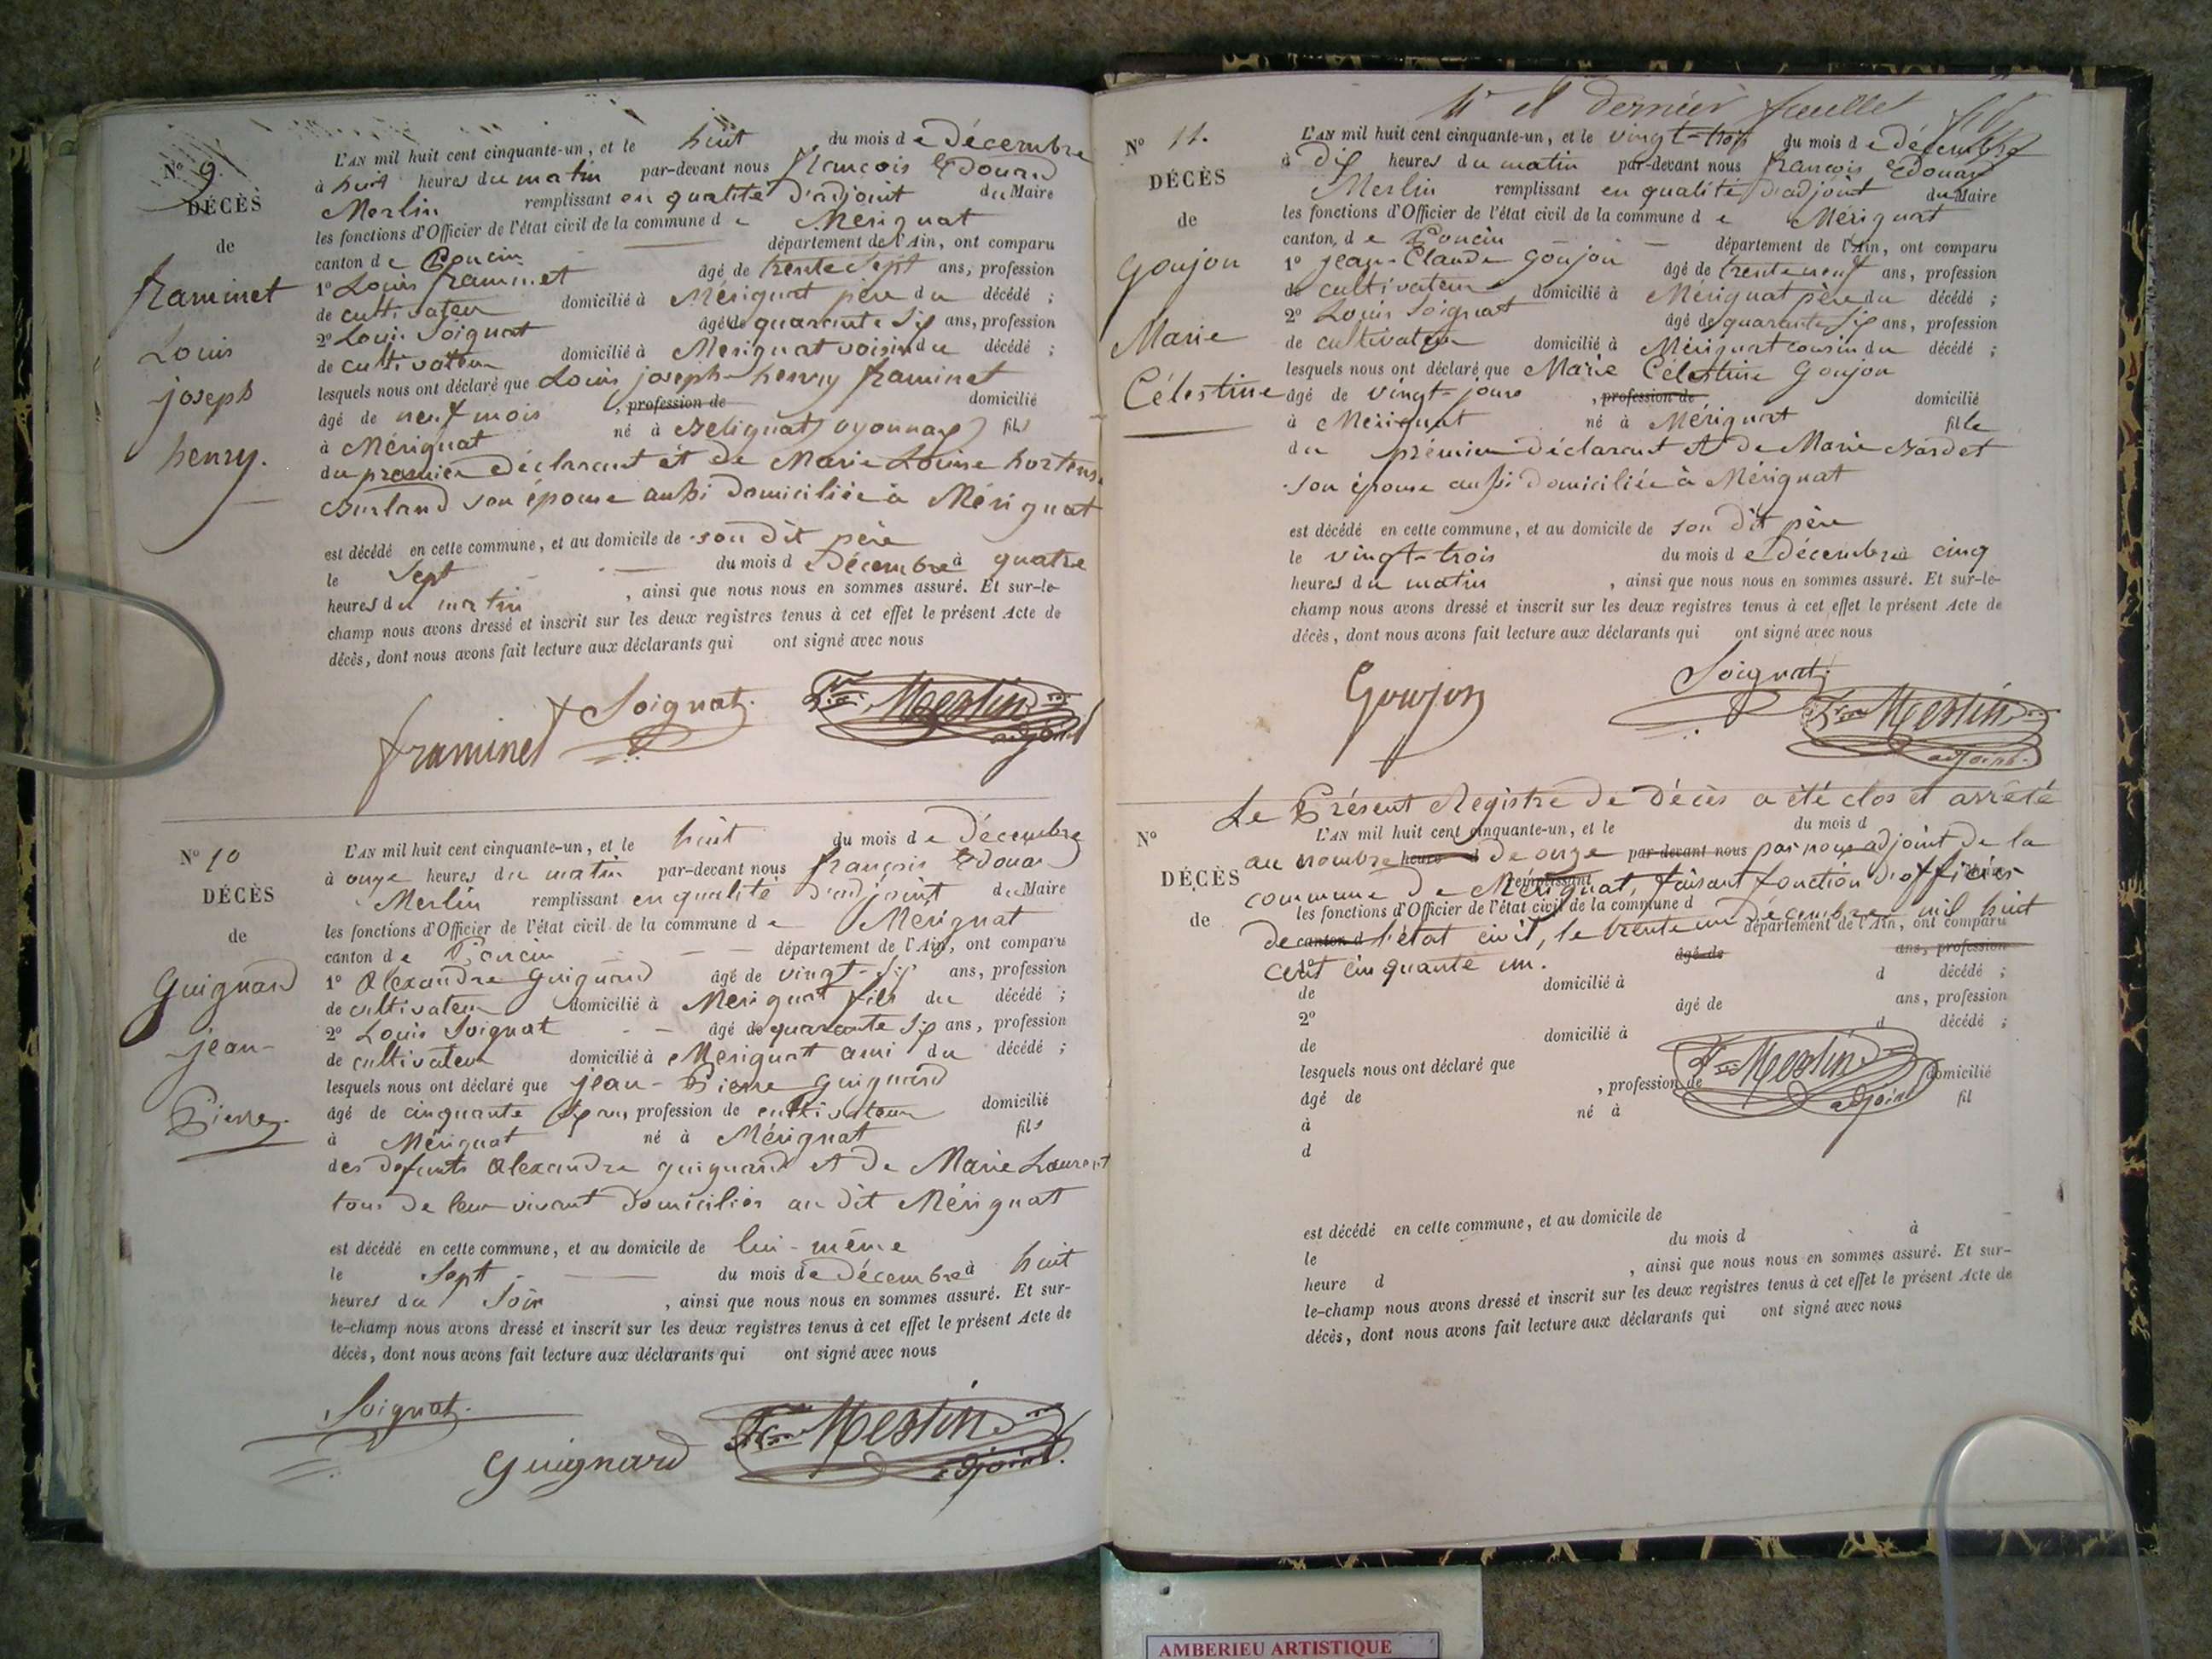 N° 9.
DÉCÈS
de
framinet
Louis
joseph
henry.
L'AN mil huit cent cinquante-un, et le huit du mois de Décembre
à huit heures du matin par-devant nous françois Edouard
Merlin remplissant en qualité d'adjoint du Maire
les fonctions d'Officier de l'état civil de la commune de Mérignat
canton de Poncin département de l'Ain, ont comparu
1° Louis framinet âgé de trente Sept ans, profession
de cultivateur domicilié à Mérignat père du décédé ;
2° Louis Soignat âgé de quarante Six ans, profession
de cultivateur domicilié à Mérignat voisin du décédé ;
lesquels nous ont déclaré que Louis joseph henry framinet
âgé de neuf mois , profession de domicilié
à Mérignat né à Belignat (oyonnax) fils
du premier déclarant et de Marie Louise hortense
Burland son épouse aussi domiciliée à Mérignat
est décédé en cette commune, et au domicile de son dit père
le Sept du mois de Décembre à quatre
heures du matin , ainsi que nous nous en sommes assuré. Et sur-le-
champ nous avons dressé et inscrit sur les deux registres tenus à cet effet le présent Acte de
décès, dont nous avons fait lecture aux déclarants qui ont signé avec nous
framinet Soignat Merlin adjoint
N° 10
DÉCÈS
de
Guignard
jean-
Pierre.
L'AN mil huit cent cinquante-un, et le huit du mois de Décembre
à onze heures du matin par-devant nous françois Edouard
Merlin remplissant en qualité d'adjoint du Maire
les fonctions d'Officier de l'état civil de la commune de Mérignat
canton de Poncin département de l'Ain, ont comparu
1° Alexandre Guignard âgé de vingt-Six ans, profession
de cultivateur domicilié à Mérignat fils du décédé ;
2° Louis Soignat âgé de quarante Six ans, profession
de cultivateur domicilié à Mérignat ami du décédé ;
lesquels nous ont déclaré que jean-Pierre Guignard
âgé de cinquante ans, profession de cultivateur domicilié
à Mérignat né à Mérignat fils
des defunts Alexandre guignard et de Marie Laurent
tous de leur vivant domiciliés au dit Mérignat
est décédé en cette commune, et au domicile de lui-même
le Sept du mois de Décembre à huit
heures du Soir , ainsi que nous nous en sommes assuré. Et sur-
le-champ nous avons dressé et inscrit sur les deux registres tenus à cet effet le présent Acte de
décès, dont nous avons fait lecture aux déclarants qui ont signé avec nous
Soignat. Guignard Merlin adjoint.
11e et dernier feuillet
N° 11.
DÉCÈS
de
Goujon
Marie
Célestine
L'AN mil huit cent cinquante-un, et le vingt-trois du mois de Décembre
à Dix heures du matin par-devant nous françois Edouard
Merlin remplissant en qualité d'adjoint du Maire
les fonctions d'Officier de l'état civil de la commune de Mérignat
canton de Poncin département de l'Ain, ont comparu
1° Jean-Claude Goujon âgé de trente neuf ans, profession
de cultivateur domicilié à Mérignat père du décédé ;
2° Louis Soignat âgé de quarante Six ans, profession
de cultivateur domicilié à Mérignat cousin du décédé ;
lesquels nous ont déclaré que Marie Célestine Goujon
âgé de vingt-jours , profession de domicilié
à Mérignat né à Mérignat fille
du prémier déclarant et de Marie Bardet
son épouse aussi domiciliée à Mérignat
est décédé en cette commune, et au domicile de son dit père
le vingt-trois du mois de Décembre à cinq
heures du matin , ainsi que nous nous en sommes assuré. Et sur-le-
champ nous avons dressé et inscrit sur les deux registres tenus à cet effet le présent Acte de
décès, dont nous avons fait lecture aux déclarants qui ont signé avec nous
Goujon Soignat. Merlin adjoint.
Le Présent Registre de Décès a été clos et arrêté
N° L'AN mil huit cent cinquante-un, et le du mois d
au nombre heure d de onze par-devant nous par nous adjoint de la
DÉCÈS
commune de Mérignat, faisant fonction d'officier
remplissant
de les fonctions d'Officier de l'état civil de la commune d
de canton d l'état civil, le trente un Décembre mil huit
département de l'Ain, ont comparu
cent cinquante un.
1° âgé de ans, profession
de domicilié à d décédé ;
2° âgé de ans, profession
de domicilié à d décédé ;
lesquels nous ont déclaré que
Merlin adjoint
âgé de , profession de domicilié
à né à fil
d
est décédé en cette commune, et au domicile de
le du mois d à
heure d , ainsi que nous nous en sommes assuré. Et sur-
le-champ nous avons dressé et inscrit sur les deux registres tenus à cet effet le présent Acte de
décès, dont nous avons fait lecture aux déclarants qui ont signé avec nous
AMBERIEU ARTISTIQUE